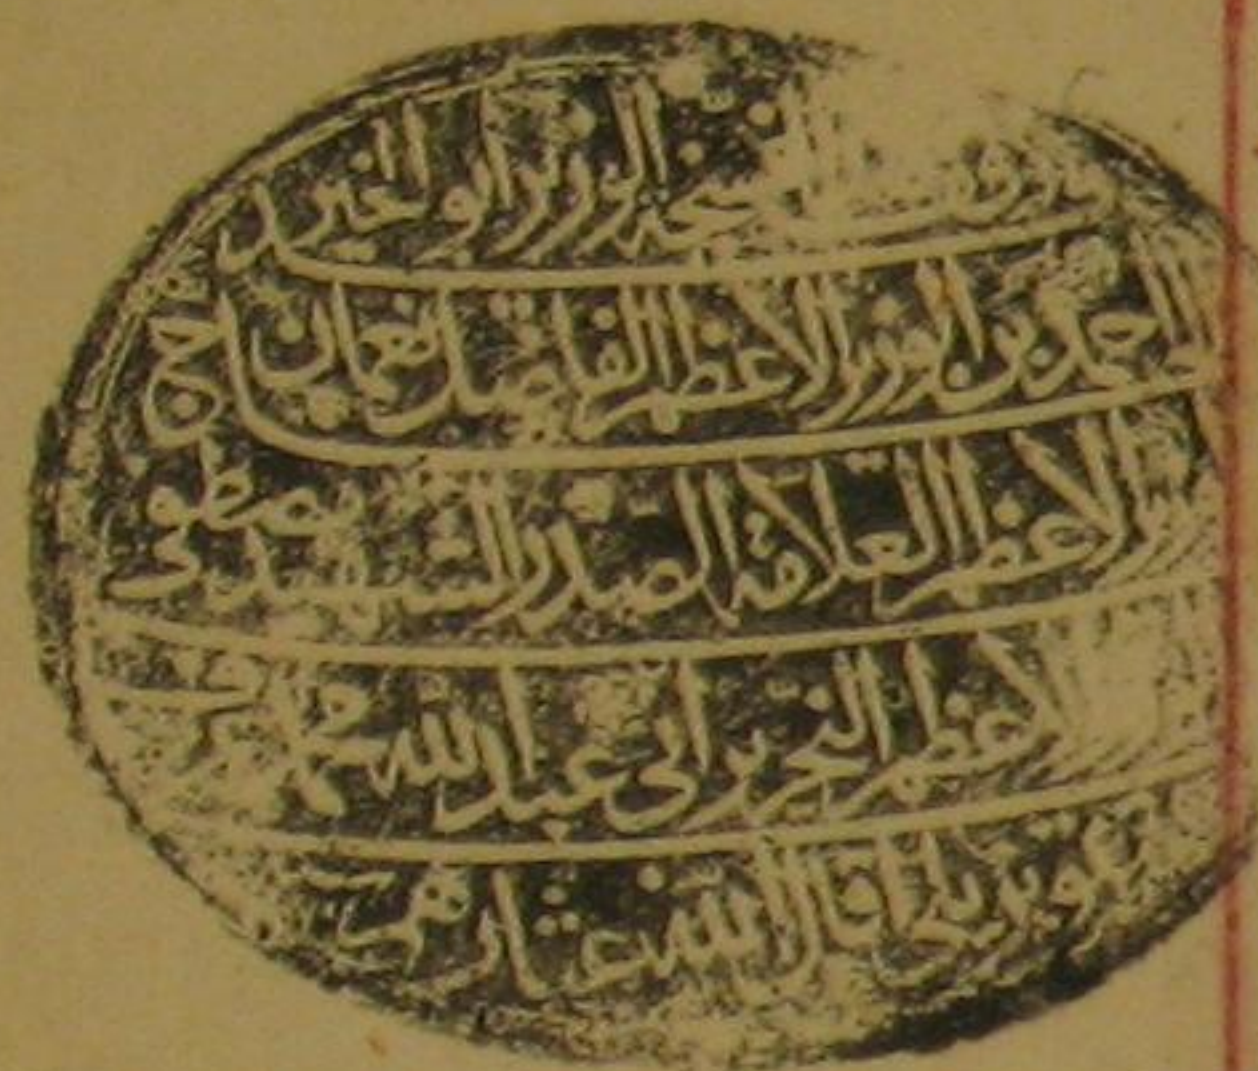 وقف النسخة الوزير ابو الخير
احمد بن الوزير الاعظم الفاضل نعمان
الاعظم العلامة الصدر الشهيد مصطفى
الاعظم النحرير ابي عبد الله محمد عرف
اقال الله عثارهم